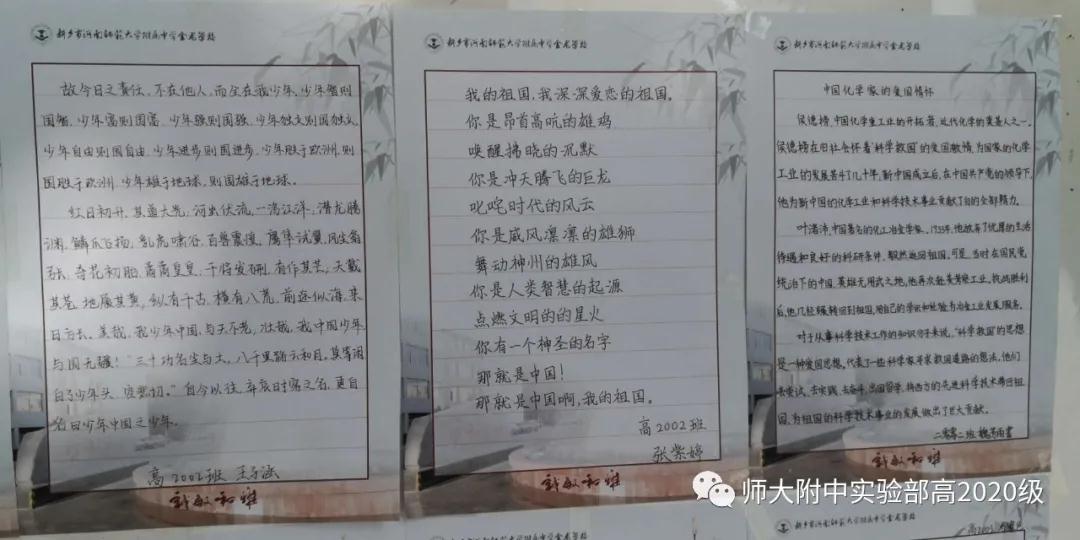 新乡市河南师范大学附属中学金龙学校
故今日之责任,不在他人,而全在我少年,少年智则
国智,少年富则国富,少年强则国强,少年独立则国独立,
少年自由则国自由,少年进步则国进步,少年胜于欧洲,则
国胜于欧洲,少年雄于地球,则国雄于地球。
红日初升,其道大光,河出伏流,一泻汪洋,潜龙腾
渊,鳞爪飞扬,乳虎啸谷,百兽震惶,鹰隼试翼,风尘翕
张,奇花初胎,矞矞皇皇,干将发硎,有作其芒,天戴
其苍,地履其黄,纵有千古,横有八荒,前途似海,来
日方长。美哉,我少年中国,与天不老,壮哉,我中国少年
与国无疆!"三十功名尘与土,八千里路云和月。莫等闲
白了少年头,空悲切。"自今以往,弃哀时客之名,更自
名曰少年中国之少年。
高2002班 王子涵
新乡市河南师范大学附属中学金龙学校
我的祖国,我深深爱恋的祖国。
你是昂首高吭的雄鸡
唤醒拂晓的沉默
你是冲天腾飞的巨龙
叱咤时代的风云
你是威风凛凛的雄狮
舞动神州的雄风
你是人类智慧的起源
点燃文明的的星火
你有一个神圣的名字
那就是中国!
那就是中国啊,我的祖国。
高2002班
张紫婷
新乡市河南师范大学附属中学金龙学校
中国化学家的爱国情怀
侯德榜,中国化学重工业的开拓者,近代化学的奠基人之一。
侯德榜在旧社会怀着"科学救国"的爱国激情,为国家的化学
工业的发展奋斗了几十年,新中国成立后,在中国共产党的领导下,
他为新中国的化学工业和科学技术事业贡献了自己的全部精力。
叶渚沛,中国著名的化工冶金学家,1933年,他放弃了优厚的生活
待遇和良好的科研条件,毅然返回祖国,可是,当时在国民党
统治下的中国,英雄无用武之地,他再次赴美考察工业,抗战胜利
后,他几经辗转回到祖国,用自己的学识和经验为冶金工业发展服务。
对于从事科学技术工作的知识分子来说,"科学救国"的思想
是一种爱国思想,代表了一些科学家寻求救国道路的想法,他们
去尝试、去实践、去奋斗,出国留学,将西方的先进科学技术带回祖
国,为祖国的科学技术事业的发展做出了巨大贡献。
二零零二班
师大附中实验部高2020级
新乡市河南师范大学附属中学金龙学校